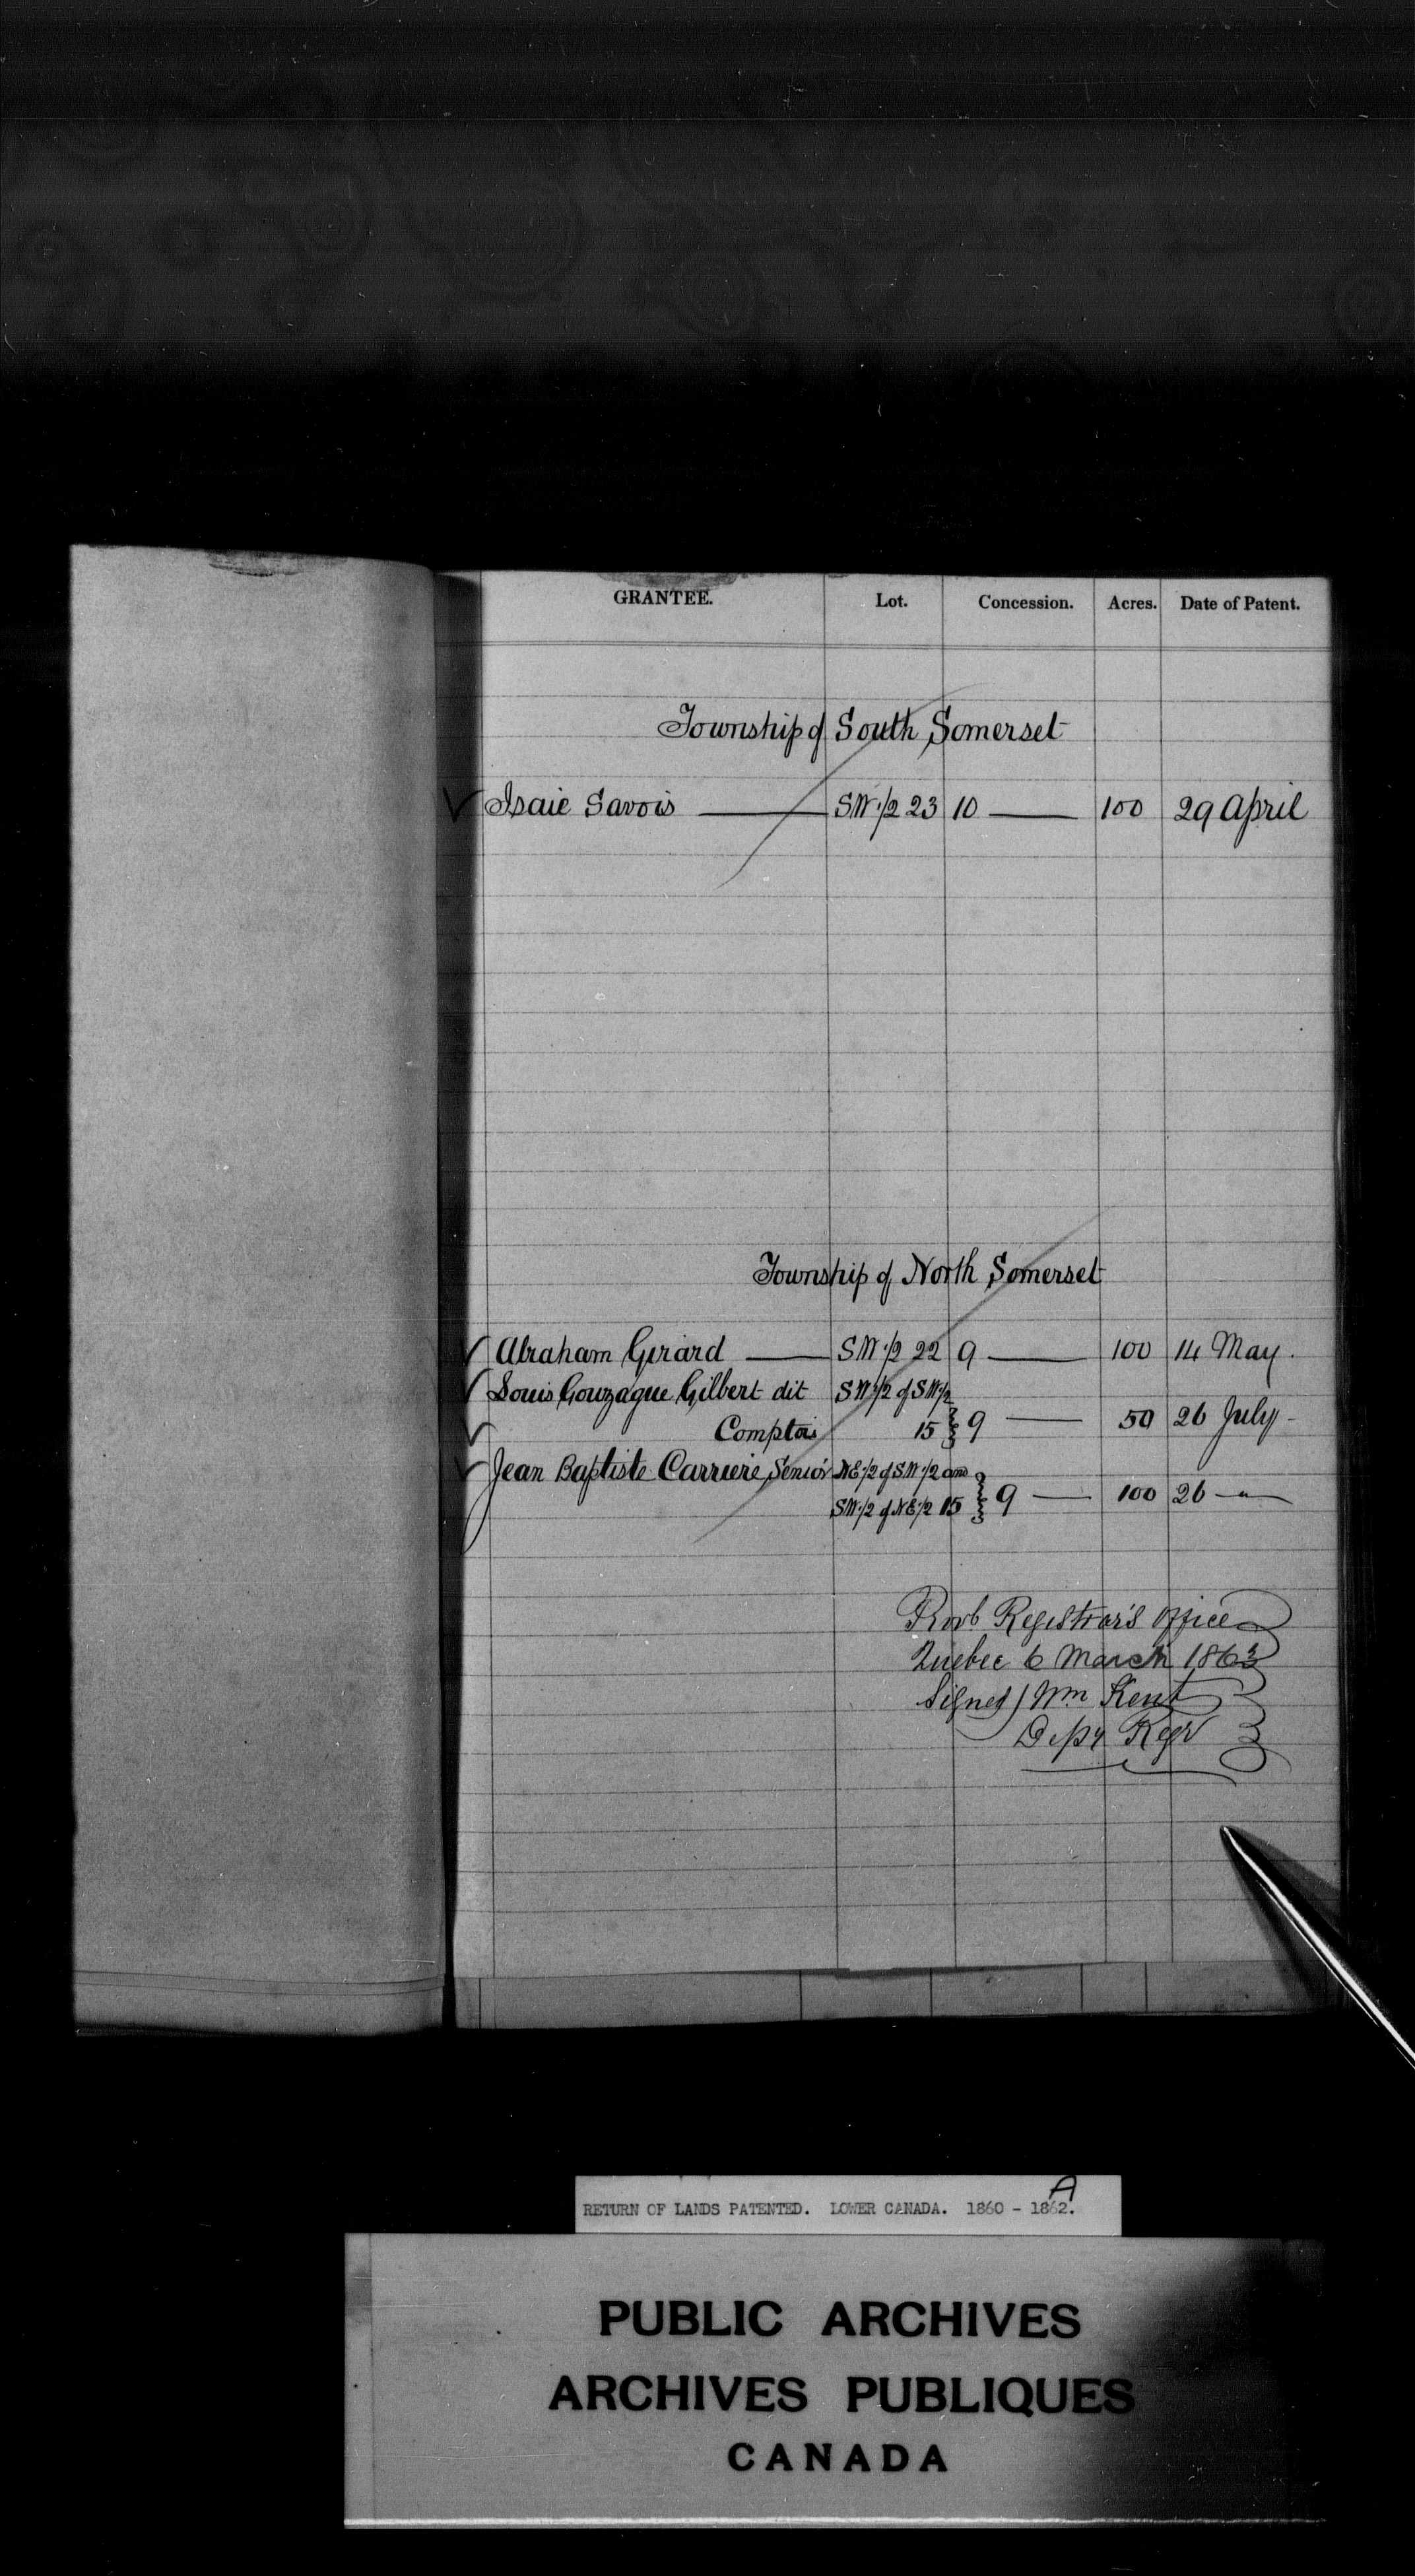 GRANTEE. Lot. Concession. Acres. Date of Patent.
Township of South Somerset
Isaie Savois S.W. 1/2 23 10 100 29 April
Township of North Somerset
Abraham Girard S.W. 1/2 22 9 100 14 May.
Louis Gonzague Gilbert dit S.W. 1/2 of S.W. 1/2
Comptois 15 9 50 26 July
Jean Baptiste Carriere, Senior N.E. 1/2 of S.W. 1/2 and
S.W. 1/2 of N.E. 1/2 15 9 100 26 — " —
Registrar's Office
Quebec 6 March 1863
Signed / Wm Kent
Depy Regr
RETURN OF LANDS PATENTED. LOWER CANADA. 1860 - 1862.
A
PUBLIC ARCHIVES
ARCHIVES PUBLIQUES
CANADA